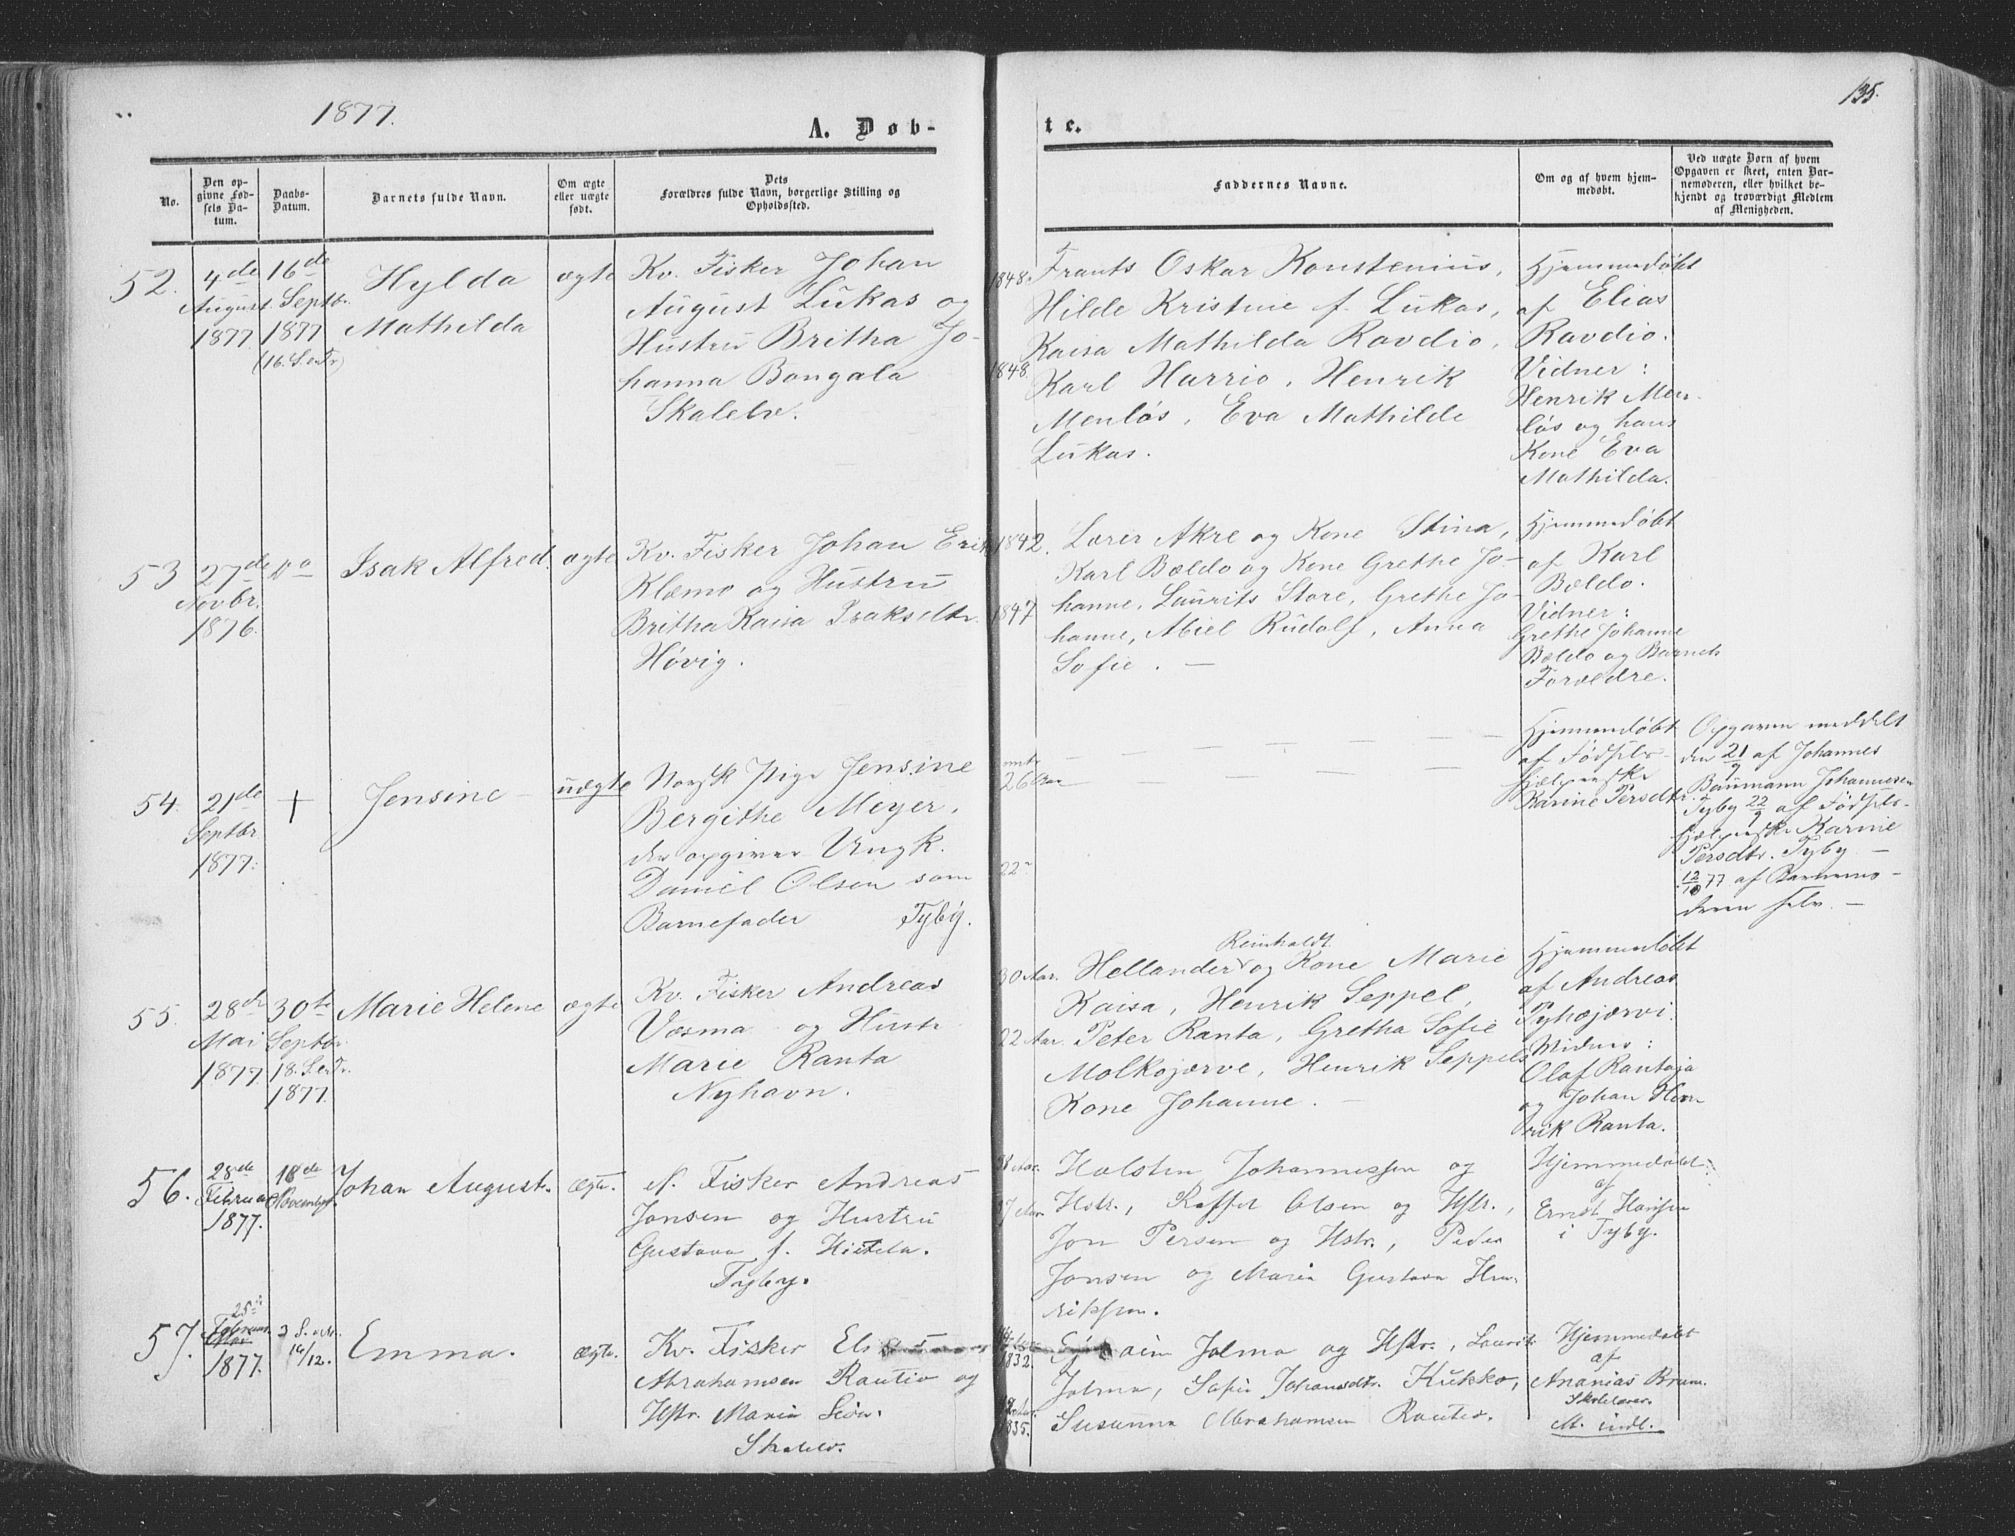 1877.
135.
A. Døb-
te.
No.
Den op-
givne Fød-
sels Da-
tum.
Daabs-
Datum.
Barnets fulde Navn.
Om ægte
eller uægte
født.
Dets
Forældres fulde Navn, borgerlige Stilling og
Opholdssted.
Faddernes Navne.
Om og af hvem hjem-
medøbt.
Ved uægte Børn af hvem
Opgaven er skeet, enten Bar-
nemoderen, eller hvilket be-
kjendt og troværdigt Medlem
af Menigheden.
52.
4de
August
1877
16de
Septbr.
1877
Hylda
Mathilda
ægte
Kv. Fisker Johan
August Lukas og
Hustru Britha Jo-
hanna Bangala
Skalelv.
1848.
1848
Frants Oskar Konstenius,
Hilde Kristine f. Lukas,
Kaisa Mathilda Ravdio,
Karl Harrio, Henrik
Menløs, Eva Mathilde
Lukas.
Hjemmedøbt
af Elias
Ravdio.
Vidner:
Henrik Men-
løs og hans
Kone Eva
Mathilda.
53
27de
Novbr.
1876.
Isak Alfred.
ægte
Kv. Fisker Johan Erik
Klæmo og Hustru
Britha Kaisa Isaksdtr.
Høvig.
1842.
1847
Lærer Akre og Kone Stina,
Karl Bældo og Kone Grethe Jo-
hanne, Laurits Store, Grethe Jo-
hanne, Abiel Rudolf, Anna
Sofie. —
Hjemmedøbt
af Karl
Bældo.
Vidner:
Grethe Johanne
Bældo og Barnets
Forældre.
54.
21de
Septbr.
1877.
+
Jensine
uægte
Norsk Pige Jensine
Bergithe Meyer,
der opgiver Ungk.
Daniel Olsen som
Barnefader Tyby.
26 Aar
22
Hjemmedøbt
af Fødsels-
hjælperske
Karine Persdtr.
Opgaven meddelt
den 21/9 af Johannes
Baumann Johannesen
Tyby 22/9 af Fødsels-
hjælperske Karine
Persdtr. Tyby —
12/10 77 af Barnemo-
deren selv. —
55.
28de
Mai
1877.
30te
Septbr.
1877.
Marie Helene
ægte
Kv. Fisker Andreas
Væsma og Hustr.
Marie Ranta
Nyhavn.
30 Aar.
22 Aar.
Reinholdt
Hellander og Kone Marie
Kaisa, Henrik Seppel,
Peter Ranta, Gretha Sofie
Molkojærve, Henrik Seppels
Kone Johanne. —
Hjemmedøbt
af Andreas
Pyhejærvi.
Vidner:
Olaf Rantaja
og Johan Hen-
rik Ranta.
56.
28de
Februar
1877.
18de
Novembr.
Johan August.
ægte.
N. Fisker Andreas
Jonsen og Hustru
Gustava f. Hietela.
Tyby.
Halstin Johannessen og
Hstr., Olsen og Hstr.,
Jon Persen og Hstr., Peder
Jonsen og Maria Gustava Hen-
riksen.
Hjemmedøbt
af
Ernst Hansen
i Tyby.
57.
25de
Februar.
1877.
16/12.
Emma.
ægte.
Kv. Fisker
Abrahamsen Rautio og
Hstr. Maria
Skalelv.
1832.
1835.
Jolma og Hstr., Laurits
Jolma, Sofie Johansdtr. Kukko,
Susanna Abrahamsen Rautio.
Hjemmedøbt
af
Ananias Brun.
Skolelærer.
M. indl.